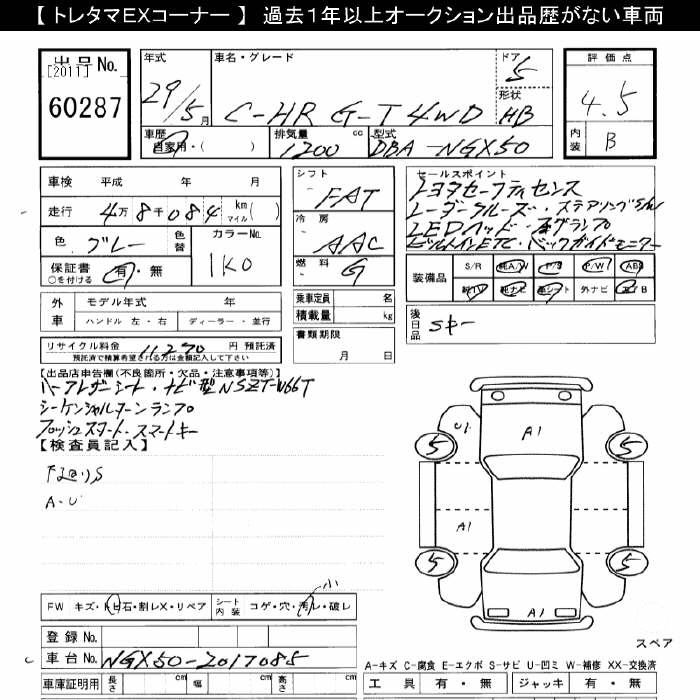 【 トレタマEXコーナー 】 過去1年以上オークション出品歴がない車両
出品No. [2011] 60287
年式 29/5月
車名・グレード C-HR G-T 4WD
ドア 5
形状 HB
評価点 4.5
内装 B
車歴 自家用・( )
排気量 1200 cc
型式 DBA-NGX50
車検 平成 年 月
走行 4万8千084 km マイル( )
色 グレー 色替
カラーNo. 1K0
保証書 有・無
○を付ける
シフト FAT
冷房 AAC
燃料 G
乗車定員 名
積載量 kg
書類期限 月 日
セールスポイント
トヨタセーフティセンス
レーダークルーズ・ステアリングSW
LEDヘッド・フォグランプ
ビルトインETC・バックガイドモニター
装備品 S/R 純A/W P/S P/W ABS
純TV 純ナビ 革シート 外ナビ エアB
後日品 Sキー
外車 モデル年式 年
ハンドル 左・右 ディーラー・並行
リサイクル料金 11,270 円 預託済
預託済で精算希望される方は金額記入して下さい
【出品店申告欄(不良箇所・欠品・注意事項等)】
ハーフレザーシート・ナビ型NSZT-W66T
シーケンシャルターンランプ
プッシュスタート・スマートキー
【検査員記入】
A・U
FW キズ・トビ石・割レX・リペア シート内装 コゲ・穴・汚レ・破レ 小
登録No.
車台No. NGX50-2017085
車庫証明用 長さ cm 幅 cm 高さ cm
U1
A1
5
5
A1
5
5
A1
スペア
A-キズ C-腐食 E-エクボ S-サビ U-凹ミ W-補修 XX-交換済
工具 有・無 ジャッキ 有・無